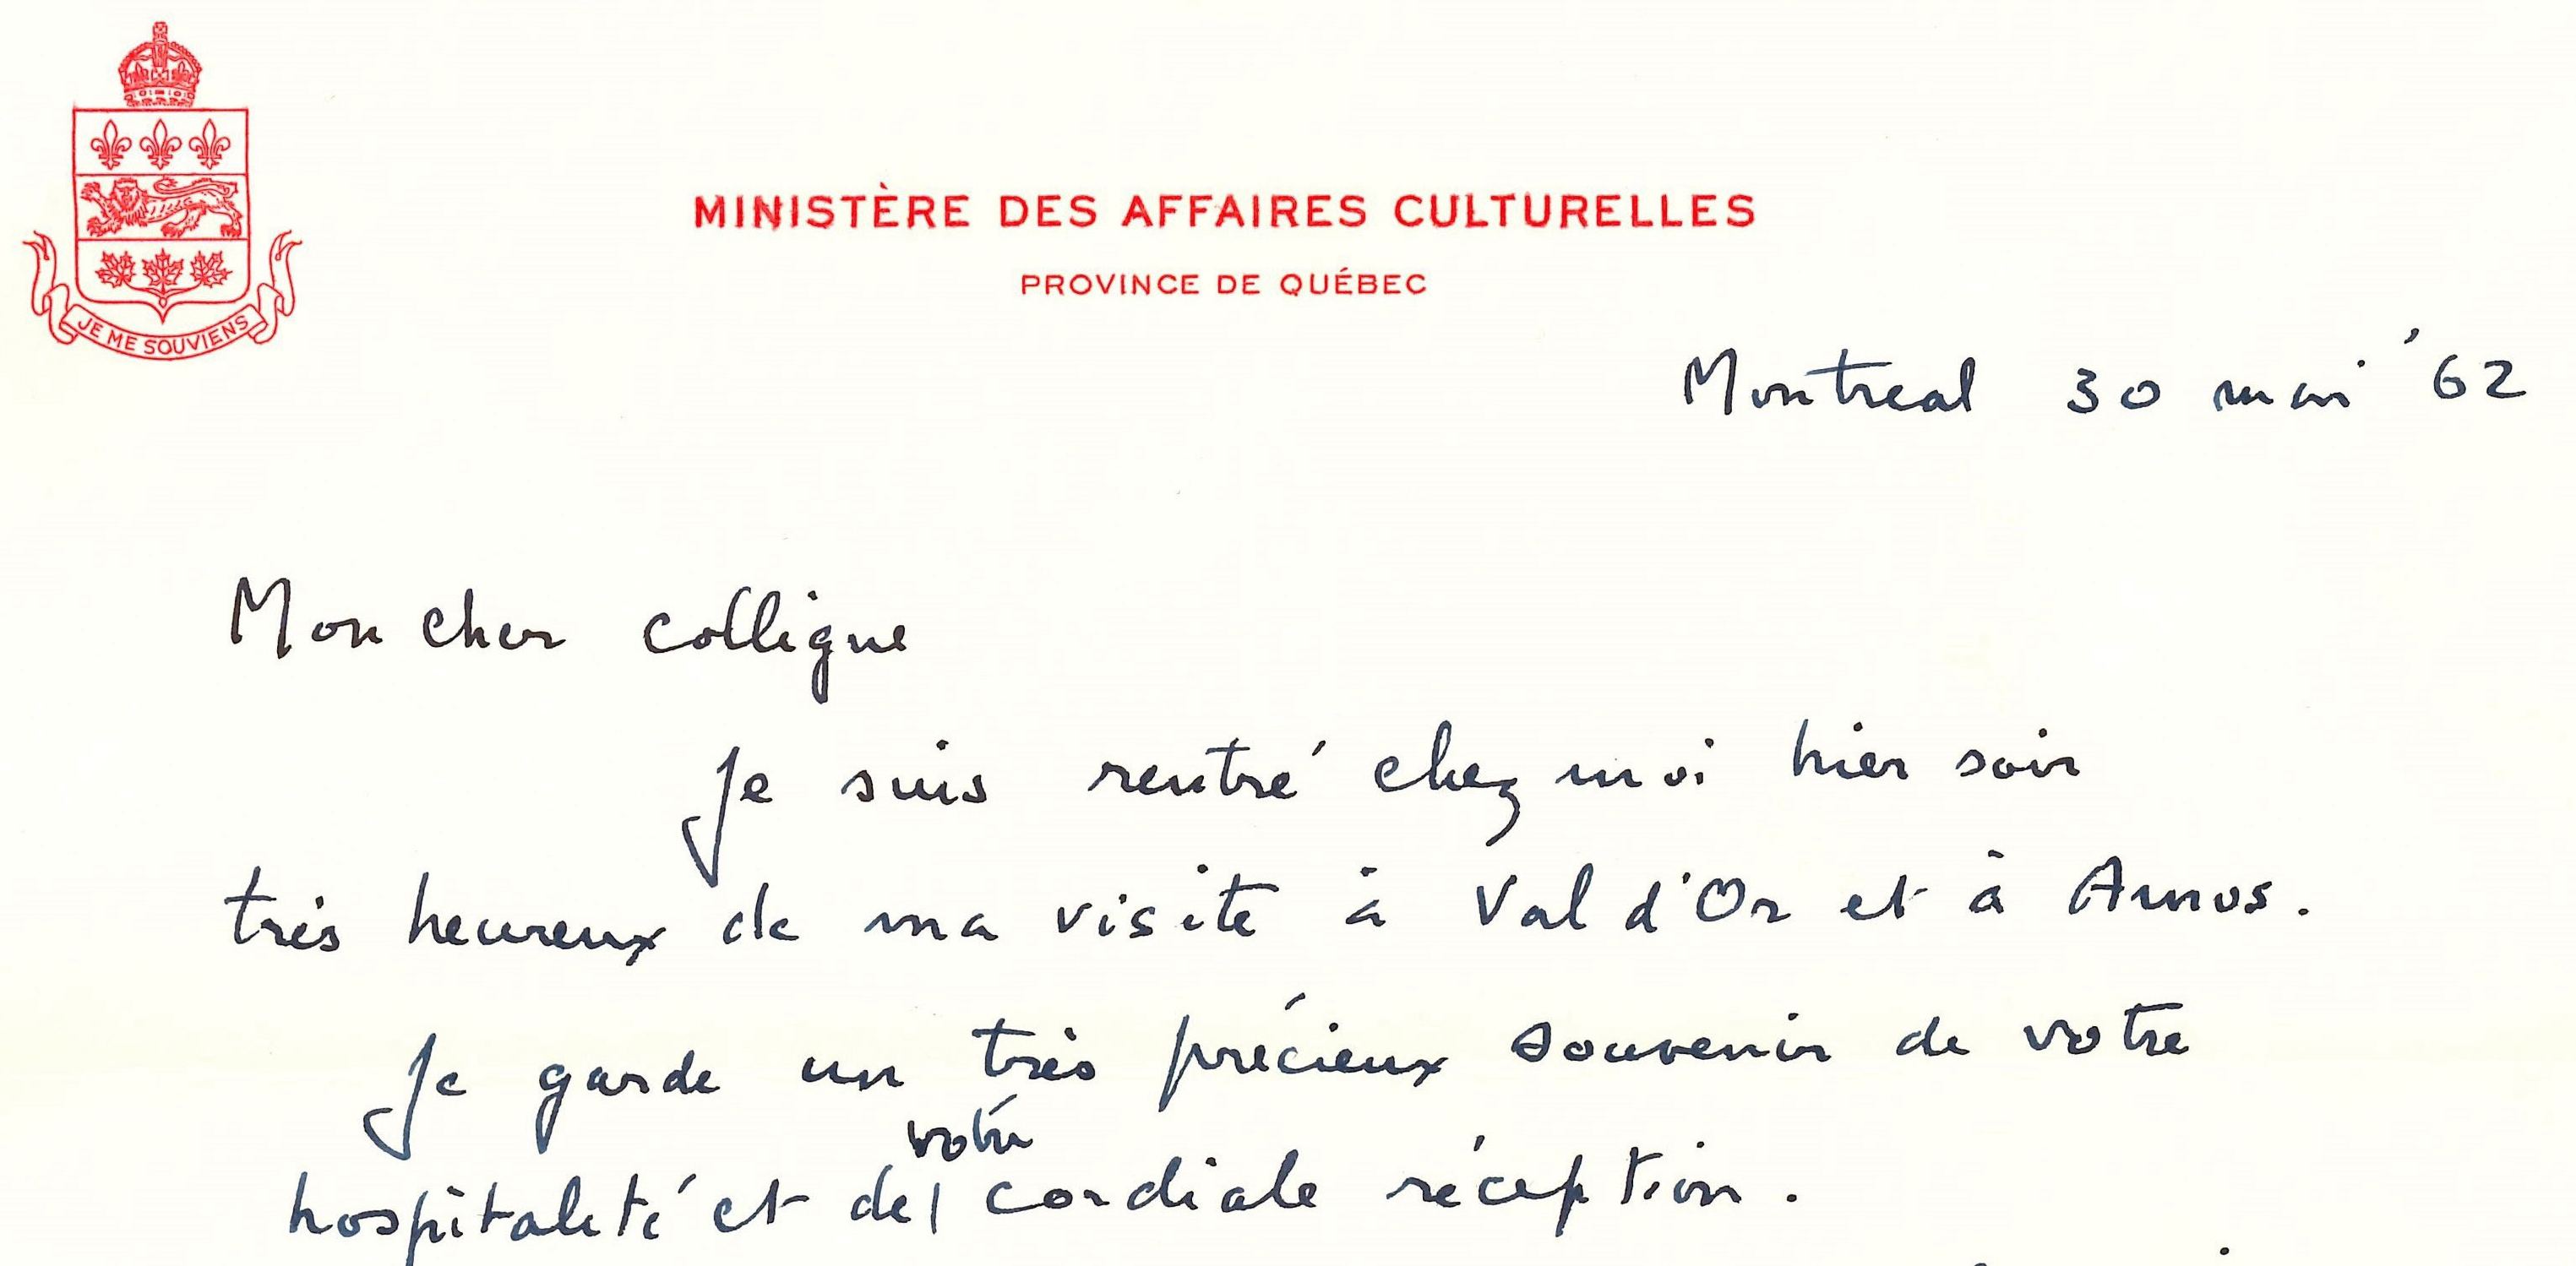 JE ME SOUVIENS
MINISTÈRE DES AFFAIRES CULTURELLES
PROVINCE DE QUÉBEC
Montreal 30 mai '62
Mon cher collègue
Je suis rentré chez moi hier soir
très heureux de ma visite à Val d'Or et à Amos.
Je garde un très précieux souvenir de votre
votre
hospitalité et de cordiale réception.